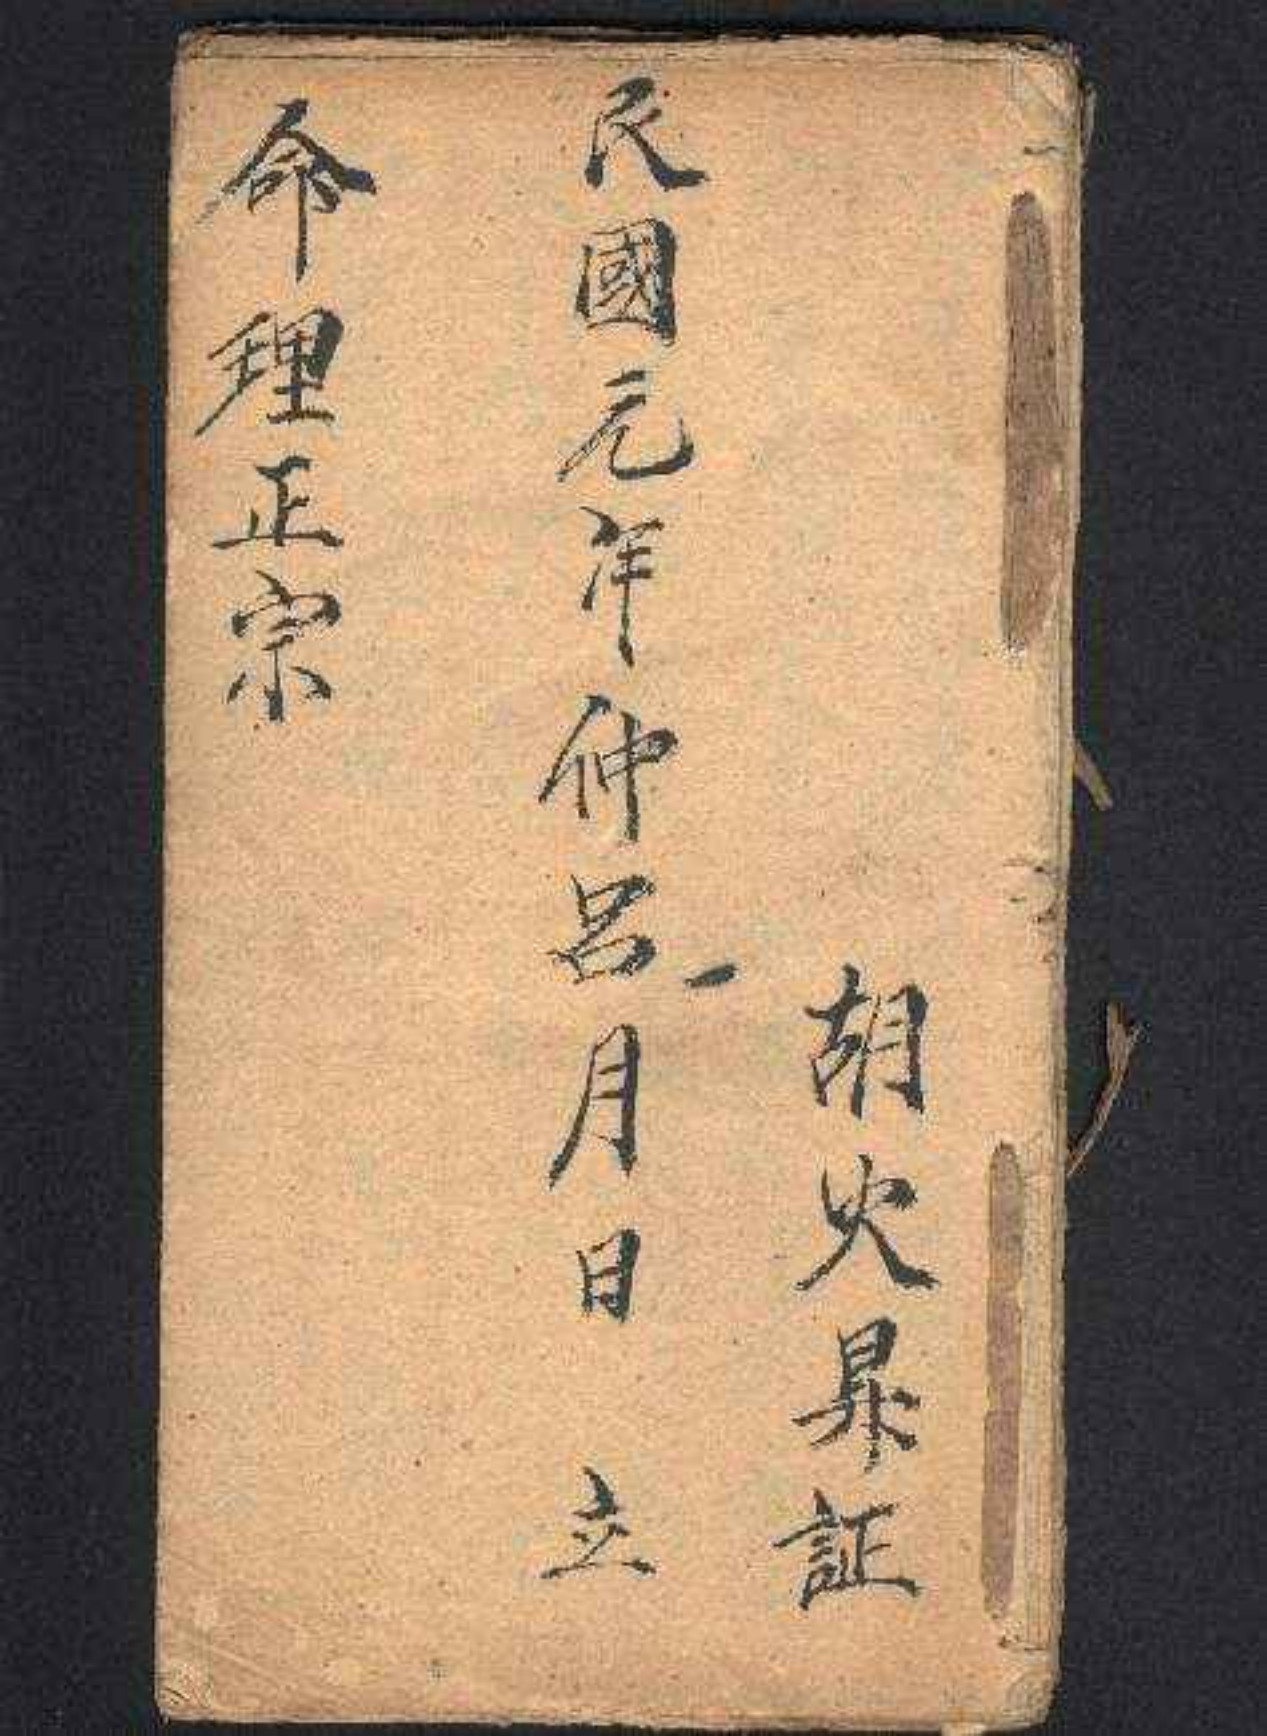 胡火昇証
民國元年仲呂月日立
命理正宗